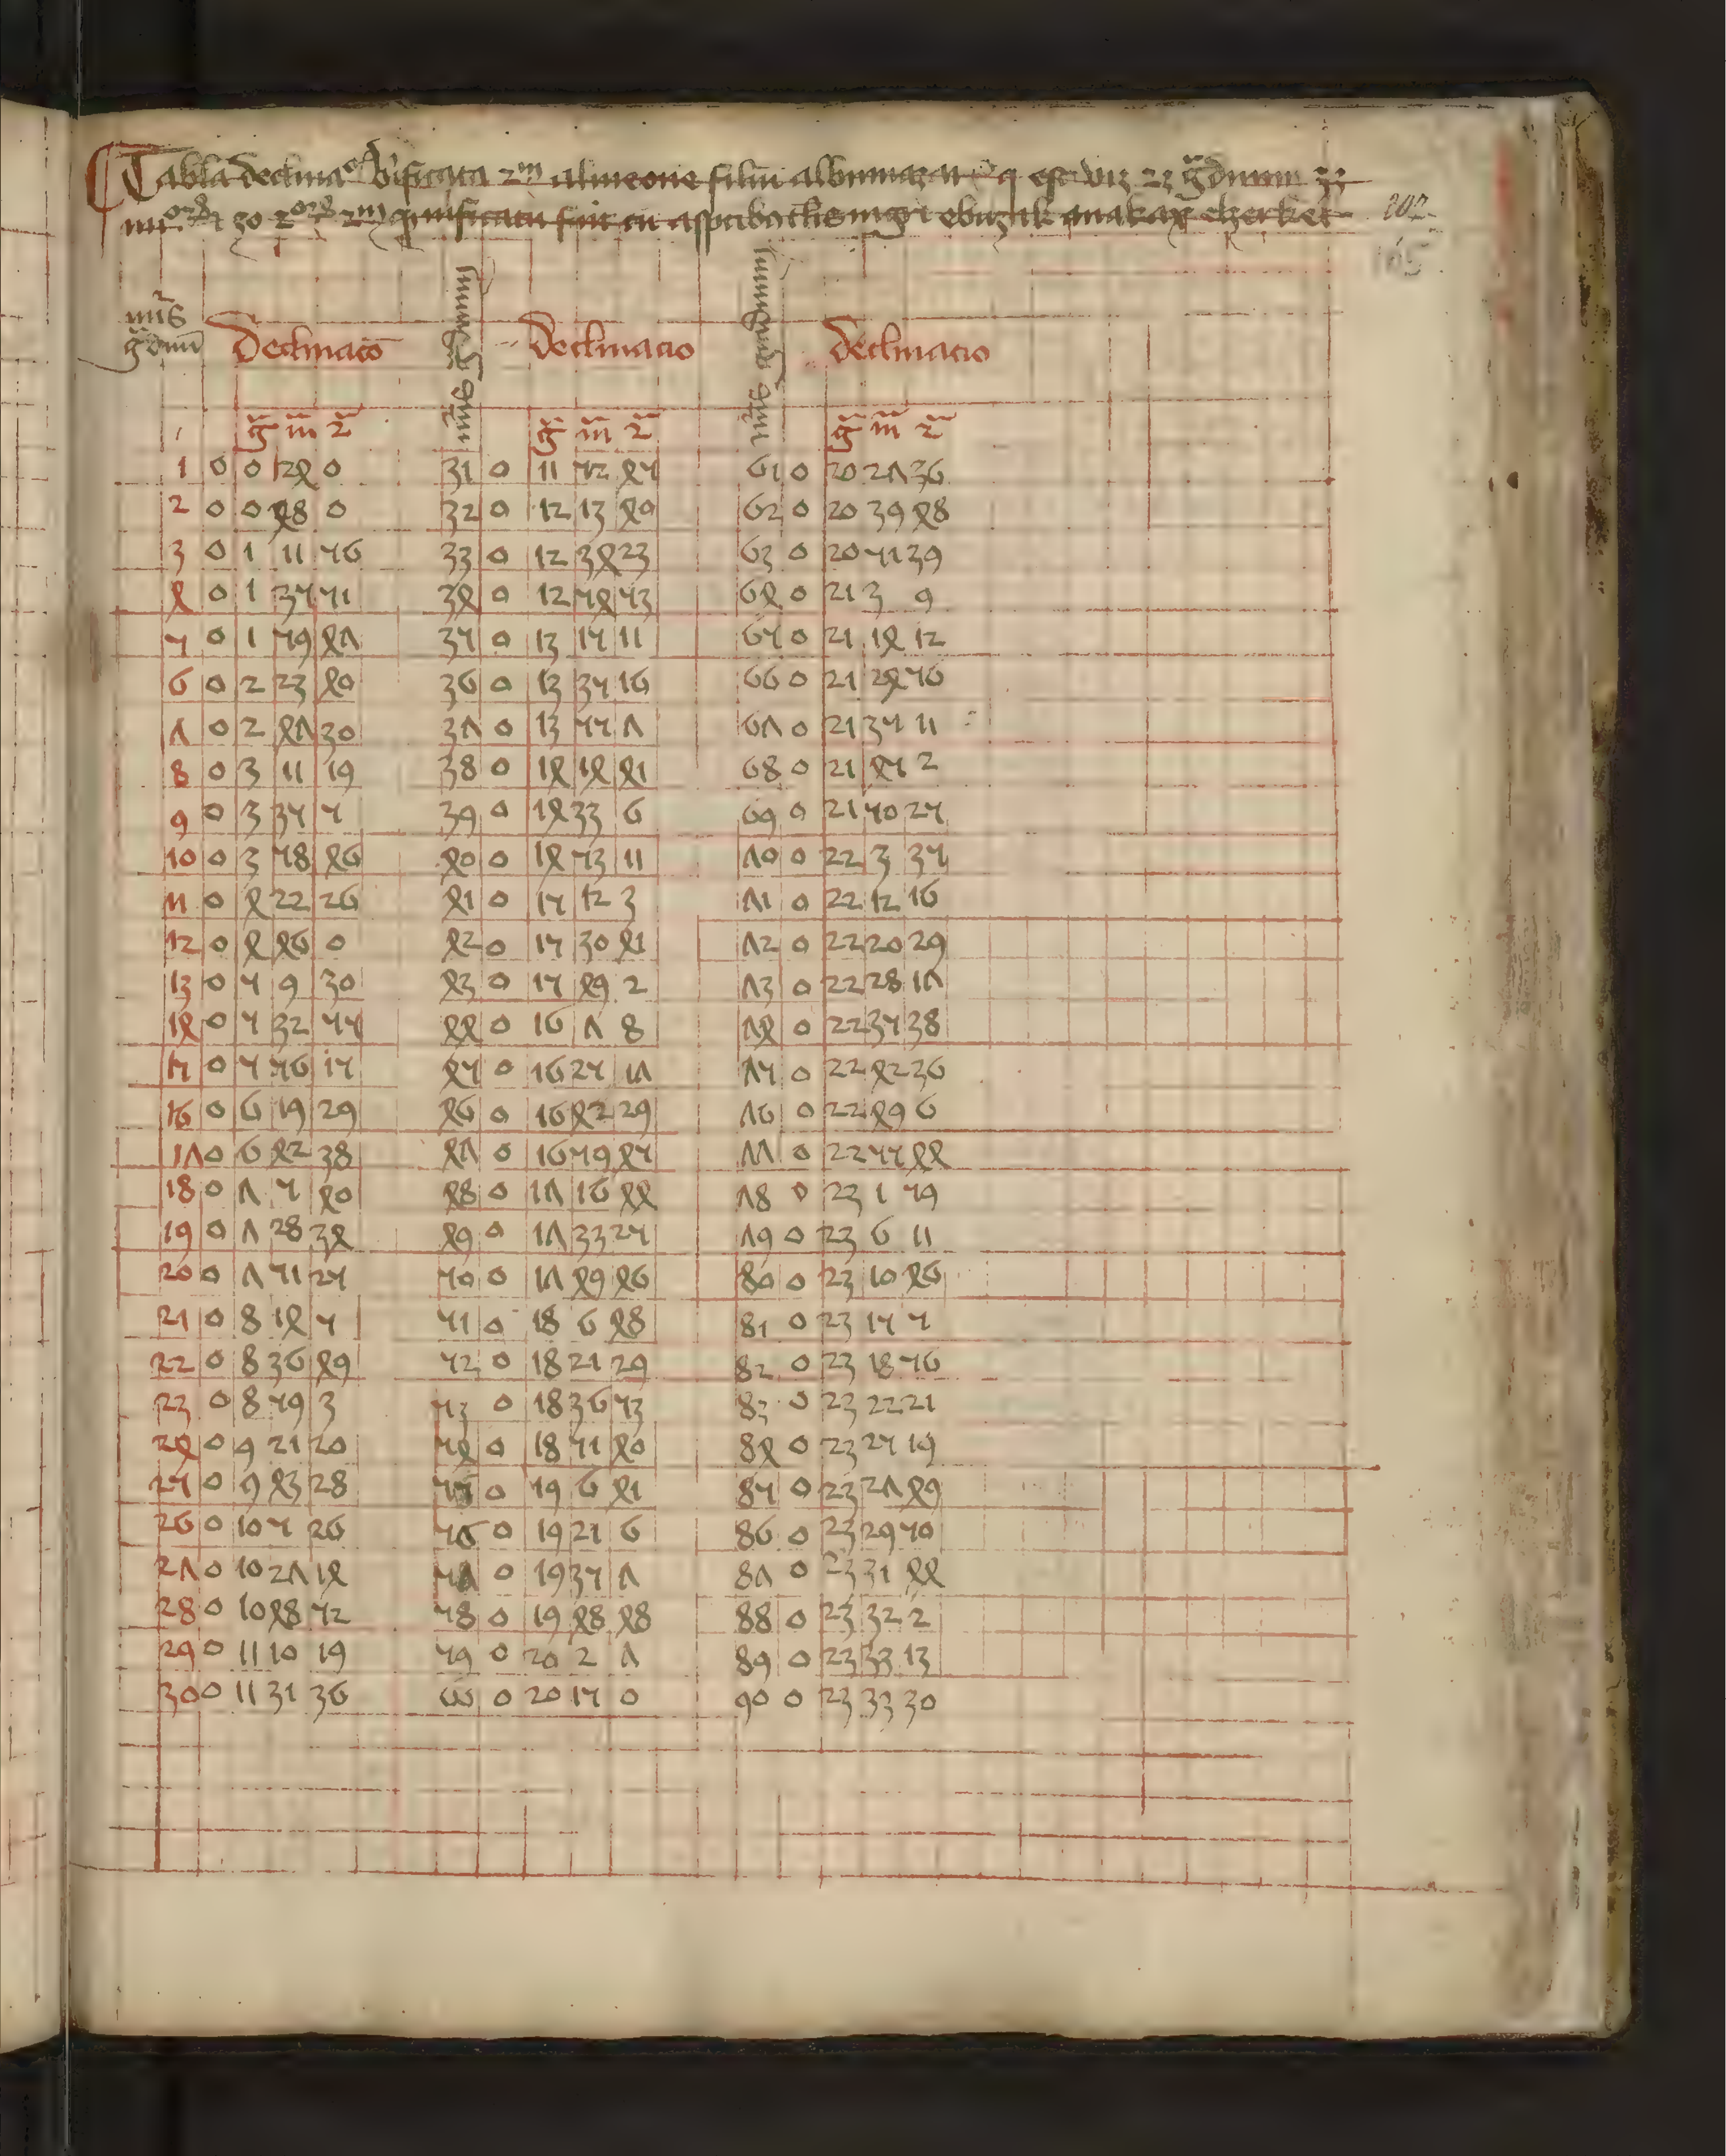 Tabla declinacois v'ificata 2m almeone filiu albumazar q est viz 23 g̃duum 33
et 30 2orum 2m 102
165
nũs g̃duũ Declinacõ nũs g̃duum Declinacio nũs graduum Declinacio
g̃ m̃ 2̃ g̃ m̃ 2̃ g̃ m̃ 2̃
1 0 0 24 0 31 0 11 52 45 61 0 20 27 36
2 0 0 48 0 32 0 12 13 40 62 0 20 39 48
3 0 1 11 56 33 0 12 34 23 63 0 20 51 39
4 0 1 35 51 34 0 12 54 53 64 0 21 3 9
5 0 1 59 47 35 0 13 15 11 65 0 21 14 12
6 0 2 23 40 36 0 13 35 16 66 0 21 24 56
7 0 2 47 30 37 0 13 55 7 67 0 21 35 11
8 0 3 11 19 38 0 14 14 41 68 0 21 45 2
9 0 3 35 5 39 0 14 33 6 69 0 21 50 25
10 0 3 58 46 40 0 14 53 11 70 0 22 3 35
11 0 4 22 26 41 0 15 12 3 71 0 22 12 16
12 0 4 46 0 42 0 15 30 41 72 0 22 20 29
13 0 5 9 30 43 0 15 49 2 73 0 22 28 17
14 0 5 32 55 44 0 16 7 8 74 0 22 35 38
15 0 5 56 15 45 0 16 25 17 75 0 22 42 36
16 0 6 19 29 46 0 16 42 29 76 0 22 49 6
17 0 6 42 38 47 0 16 59 45 77 0 22 55 44
18 0 7 5 40 48 0 17 16 44 78 0 23 1 59
19 0 7 28 34 49 0 17 33 25 79 0 23 6 11
20 0 7 51 25 50 0 17 49 46 80 0 23 10 46
21 0 8 14 5 51 0 18 6 48 81 0 23 15 5
22 0 8 36 49 52 0 18 21 29 82 0 23 18 56
23 0 8 59 3 53 0 18 36 53 83 0 23 22 21
24 0 9 21 20 54 0 18 51 40 84 0 23 25 19
25 0 9 43 28 55 0 19 6 41 85 0 23 27 49
26 0 10 5 26 56 0 19 21 6 86 0 23 29 50
27 0 10 27 14 57 0 19 35 7 87 0 23 31 44
28 0 10 48 52 58 0 19 48 48 88 0 23 32 2
29 0 11 10 19 59 0 20 2 7 89 0 23 33 13
30 0 11 31 36 60 0 20 15 0 90 0 23 33 30